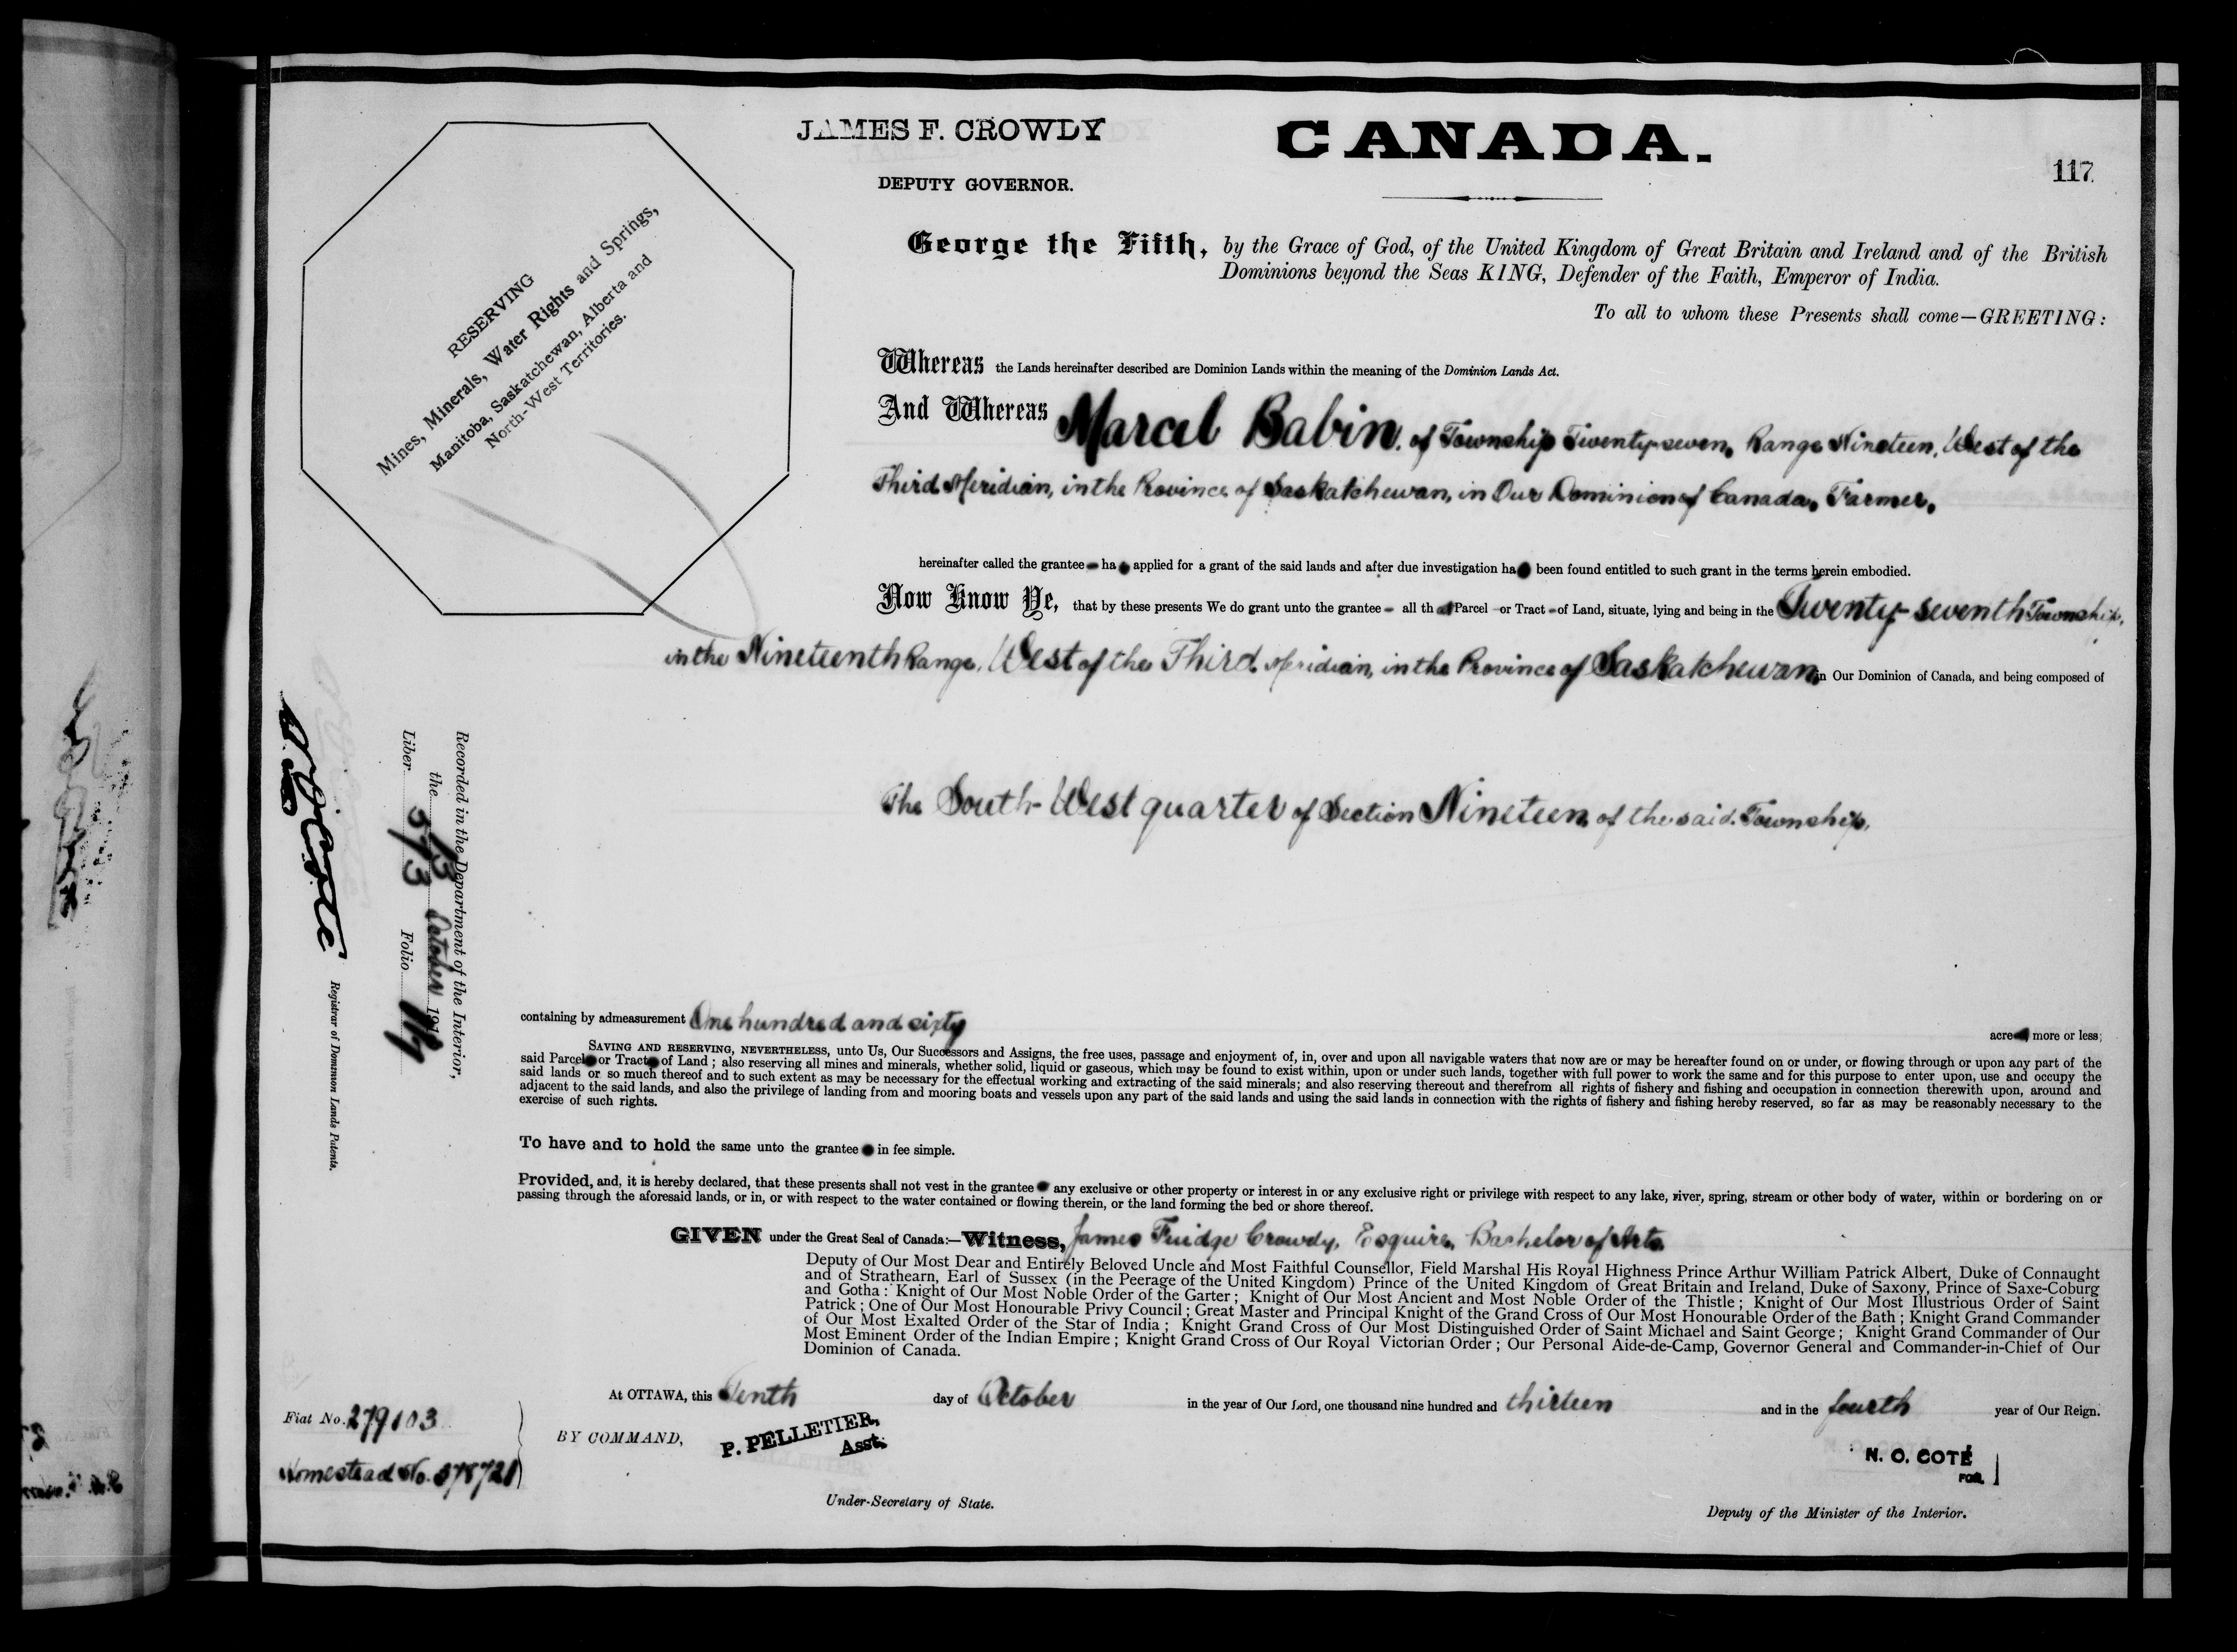 JAMES F. CROWDY
DEPUTY GOVERNOR.
CANADA.
117
RESERVING
Mines, Minerals, Water Rights and Springs,
Manitoba, Saskatchewan, Alberta and
North-West Territories.
George the Fifth, by the Grace of God, of the United Kingdom of Great Britain and Ireland and of the British
Dominions beyond the Seas KING, Defender of the Faith, Emperor of India.
To all to whom these Presents shall come—GREETING:
Whereas the Lands hereinafter described are Dominion Lands within the meaning of the Dominion Lands Act.
And Whereas Marcel Babin, of Township Twenty-seven, Range Nineteen, West of the
Third Meridian, in the Province of Saskatchewan, in Our Dominion of Canada, Farmer,
hereinafter called the grantee ha applied for a grant of the said lands and after due investigation ha been found entitled to such grant in the terms herein embodied.
Now Know Ye, that by these presents We do grant unto the grantee all that Parcel or Tract of Land, situate, lying and being in the Twenty-seventh Township,
in the Nineteenth Range, West of the Third Meridian, in the Province of Saskatchewan, in Our Dominion of Canada, and being composed of
The South-West quarter of Section Nineteen of the said Township,
containing by admeasurement One hundred and sixty
acre more or less;
SAVING AND RESERVING, NEVERTHELESS, unto Us, Our Successors and Assigns, the free uses, passage and enjoyment of, in, over and upon all navigable waters that now are or may be hereafter found on or under, or flowing through or upon any part of the
said Parcel or Tract of Land; also reserving all mines and minerals, whether solid, liquid or gaseous, which may be found to exist within, upon or under such lands, together with full power to work the same and for this purpose to enter upon, use and occupy the
said lands or so much thereof and to such extent as may be necessary for the effectual working and extracting of the said minerals; and also reserving thereout and therefrom all rights of fishery and fishing and occupation in connection therewith upon, around and
adjacent to the said lands, and also the privilege of landing from and mooring boats and vessels upon any part of the said lands and using the said lands in connection with the rights of fishery and fishing hereby reserved, so far as may be reasonably necessary to the
exercise of such rights.
To have and to hold the same unto the grantee in fee simple.
Provided, and, it is hereby declared, that these presents shall not vest in the grantee any exclusive or other property or interest in or any exclusive right or privilege with respect to any lake, river, spring, stream or other body of water, within or bordering on or
passing through the aforesaid lands, or in, or with respect to the water contained or flowing therein, or the land forming the bed or shore thereof.
GIVEN under the Great Seal of Canada:—Witness, James Fuidge Crowdy, Esquire, Bachelor of Arts
Deputy of Our Most Dear and Entirely Beloved Uncle and Most Faithful Counsellor, Field Marshal His Royal Highness Prince Arthur William Patrick Albert, Duke of Connaught
and of Strathearn, Earl of Sussex (in the Peerage of the United Kingdom) Prince of the United Kingdom of Great Britain and Ireland, Duke of Saxony, Prince of Saxe-Coburg
and Gotha: Knight of Our Most Noble Order of the Garter; Knight of Our Most Ancient and Most Noble Order of the Thistle; Knight of Our Most Illustrious Order of Saint
Patrick; One of Our Most Honourable Privy Council; Great Master and Principal Knight of the Grand Cross of Our Most Honourable Order of the Bath; Knight Grand Commander
of Our Most Exalted Order of the Star of India; Knight Grand Cross of Our Most Distinguished Order of Saint Michael and Saint George; Knight Grand Commander of Our
Most Eminent Order of the Indian Empire; Knight Grand Cross of Our Royal Victorian Order; Our Personal Aide-de-Camp, Governor General and Commander-in-Chief of Our
Dominion of Canada.
At OTTAWA, this Tenth day of October in the year of Our Lord, one thousand nine hundred and thirteen and in the fourth year of Our Reign.
BY COMMAND,
P. PELLETIER,
Asst.
Under-Secretary of State.
N. O. COTÉ
FOR.
Deputy of the Minister of the Interior.
Fiat No. 279103
Homestead No. 378721
Recorded in the Department of the Interior,
the 13 October 191
Liber 573 Folio 117
N. O. Coté
Registrar of Dominion Lands Patents.